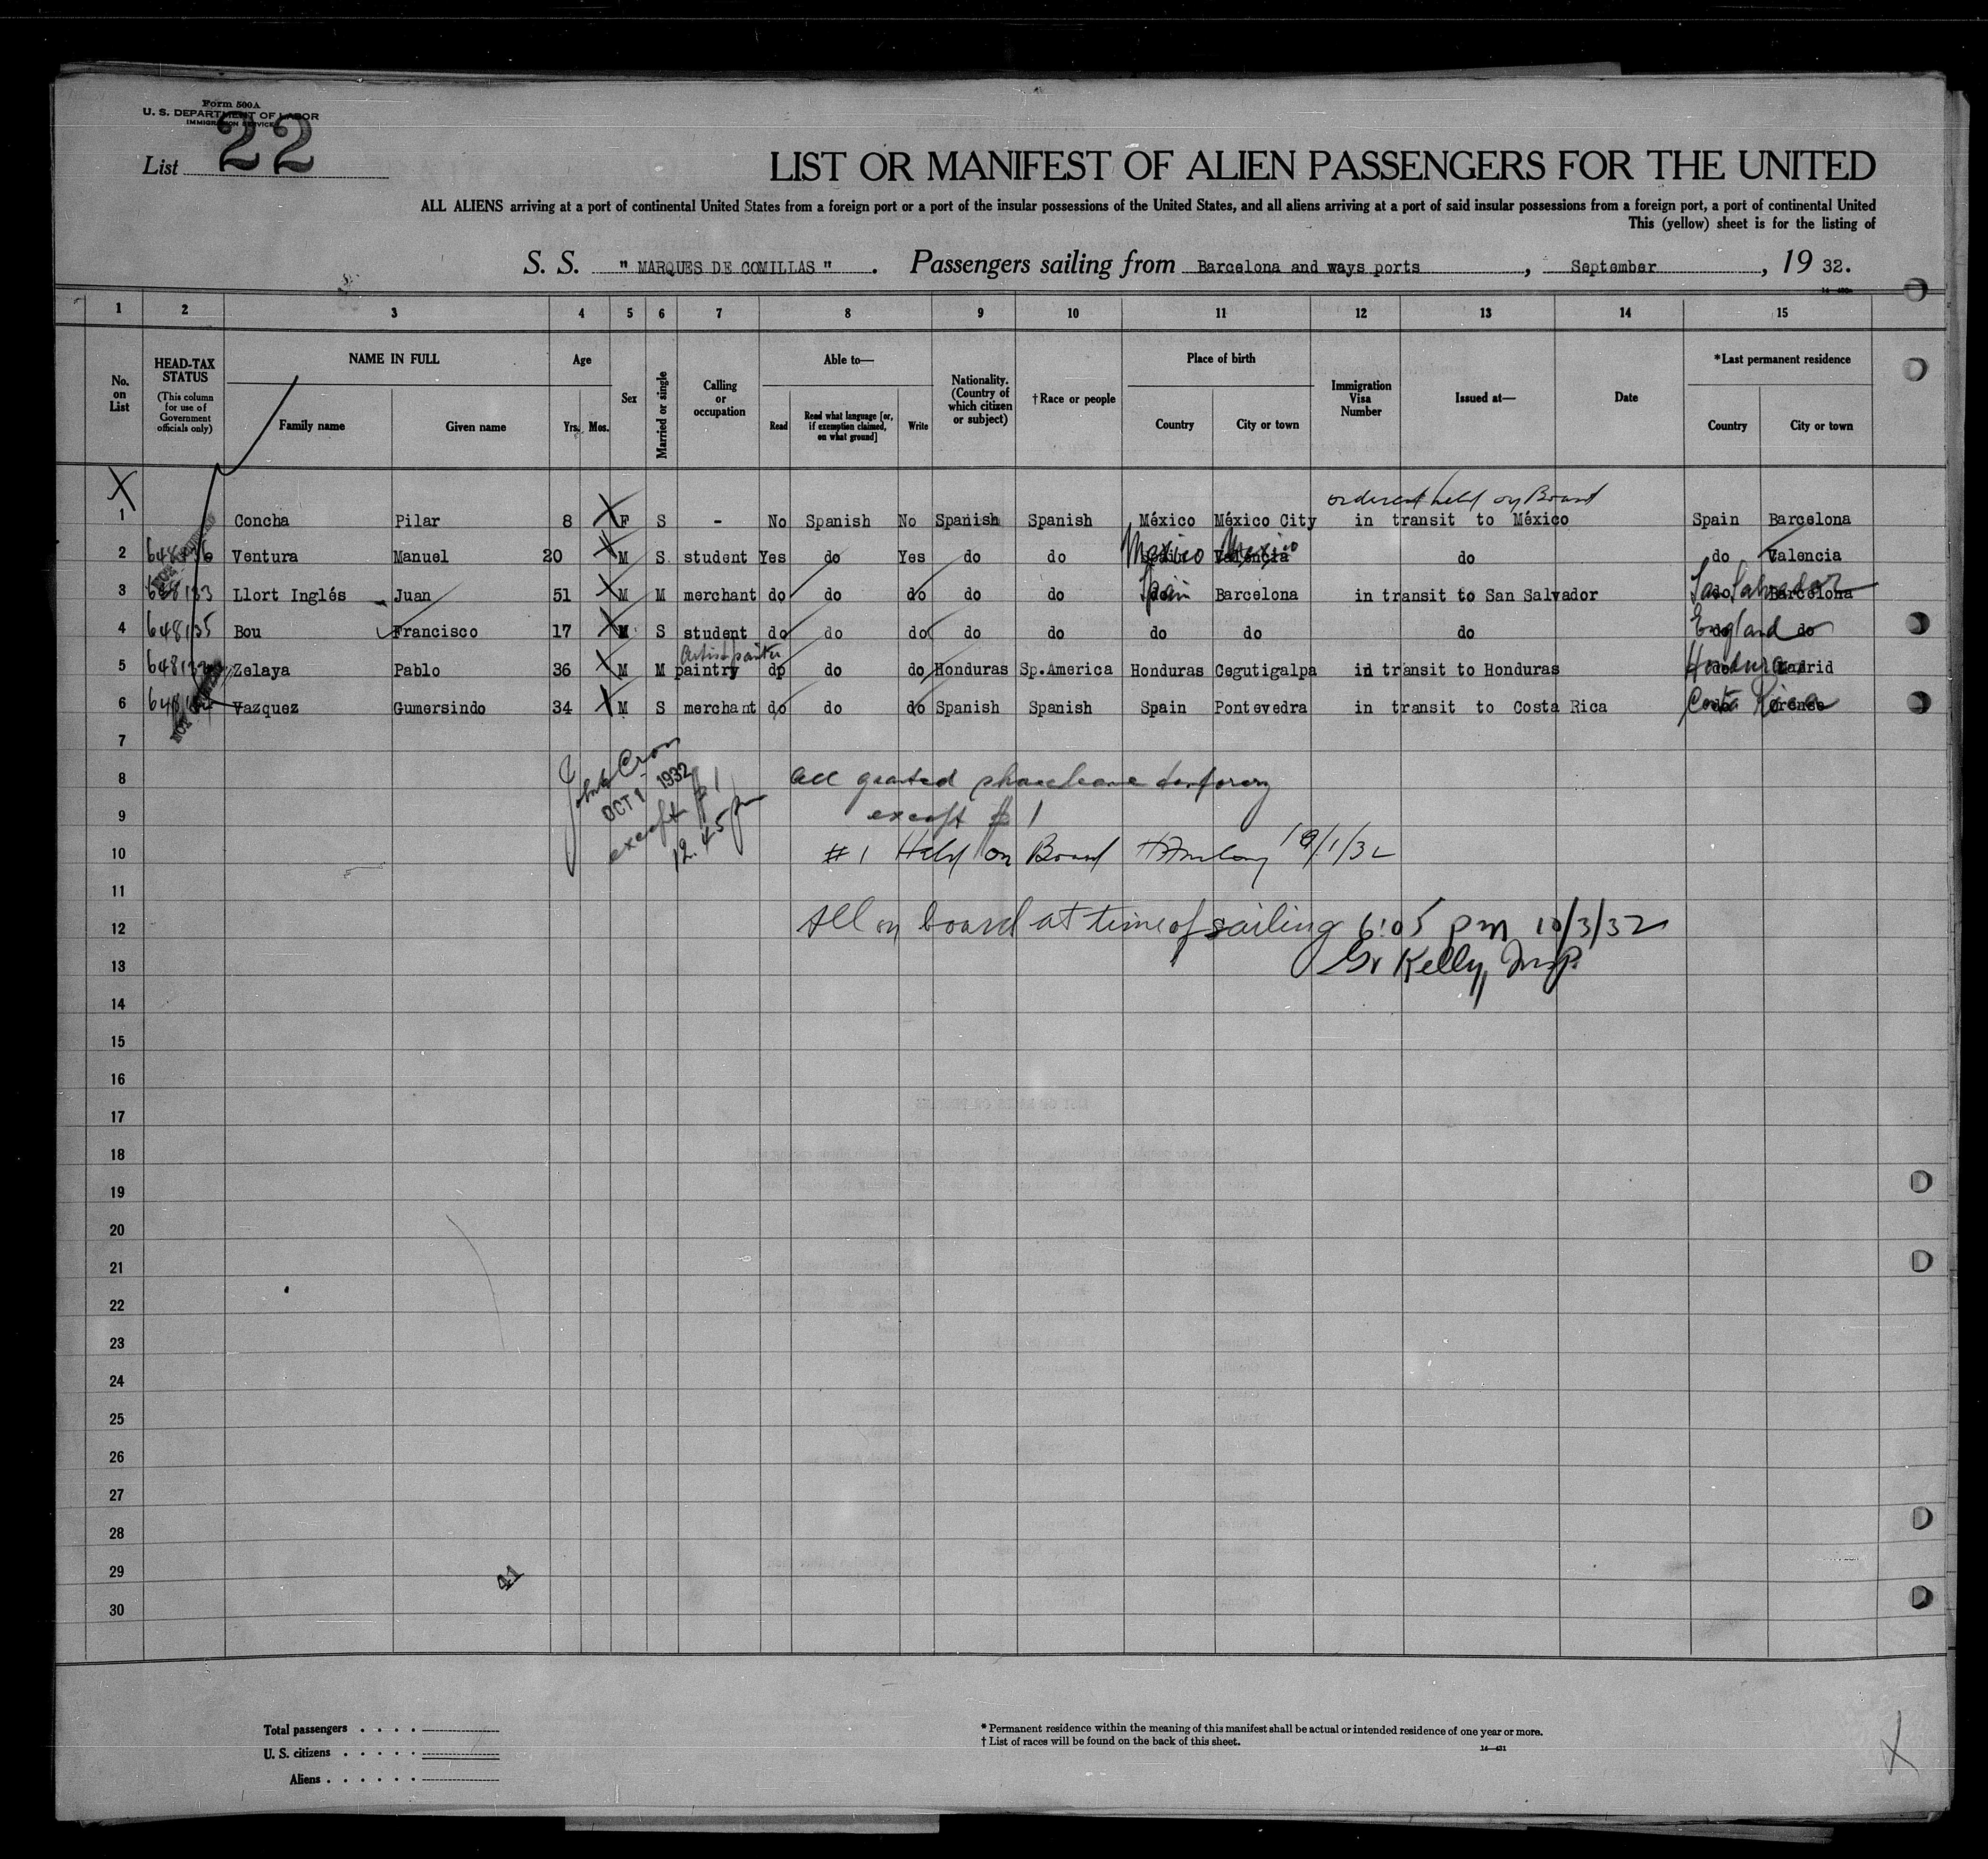 Form 500A
U. S. DEPARTMENT OF LABOR
IMMIGRATION SERVICE
List 22
LIST OR MANIFEST OF ALIEN PASSENGERS FOR THE UNITED
ALL ALIENS arriving at a port of continental United States from a foreign port or a port of the insular possessions of the United States, and all aliens arriving at a port of said insular possessions from a foreign port, a port of continental United
This (yellow) sheet is for the listing of
S. S. " MARQUES DE COMILLAS " . Passengers sailing from Barcelona and ways ports , September , 19 32.
1 2 3 4 5 6 7 8 9 10 11 12 13 14 15
No. on List
HEAD-TAX STATUS
(This column for use of Government officials only)
NAME IN FULL
Family name Given name
Age
Yrs. Mos.
Sex
Married or single
Calling or occupation
Able to—
Read
Read what language [or, if exemption claimed, on what ground]
Write
Nationality. (Country of which citizen or subject)
†Race or people
Place of birth
Country City or town
Immigration Visa Number
Issued at—
Date
*Last permanent residence
Country City or town
X
ordered held on Board
1 Concha Pilar 8 F S - No Spanish No Spanish Spanish México México City in transit to México Spain Barcelona
2 Ventura Manuel 20 M S student Yes do Yes do do Mexico Mexico Valencia do do Valencia
3 Llort Inglés Juan 51 M M merchant do do do do do Spain Barcelona in transit to San Salvador San Salvador Barcelona
4 648135 Bou Francisco 17 M S student do do do do do do do do England do
Artist painter
5 Zelaya Pablo 36 M M paintry do do do Honduras Sp.America Honduras Cegutigalpa in transit to Honduras Honduras Madrid
6 Vazquez Gumersindo 34 M S merchant do do do Spanish Spanish Spain Pontevedra in transit to Costa Rica Costa Rica Orense
7
8 OCT 1 1932 All granted shore leave
9 except #1 except # 1
12.45 pm
10 #1 Held on Board 10/1/32
11
12 All on board at time of sailing 6:05 pm 10/3/32
13 Kelly, Insp.
14
15
16
17
18
19
20
21
22
23
24
25
26
27
28
29 41
30
Total passengers . . . .
U. S. citizens . . . . .
Aliens . . . . . .
* Permanent residence within the meaning of this manifest shall be actual or intended residence of one year or more.
† List of races will be found on the back of this sheet.
14—431
X